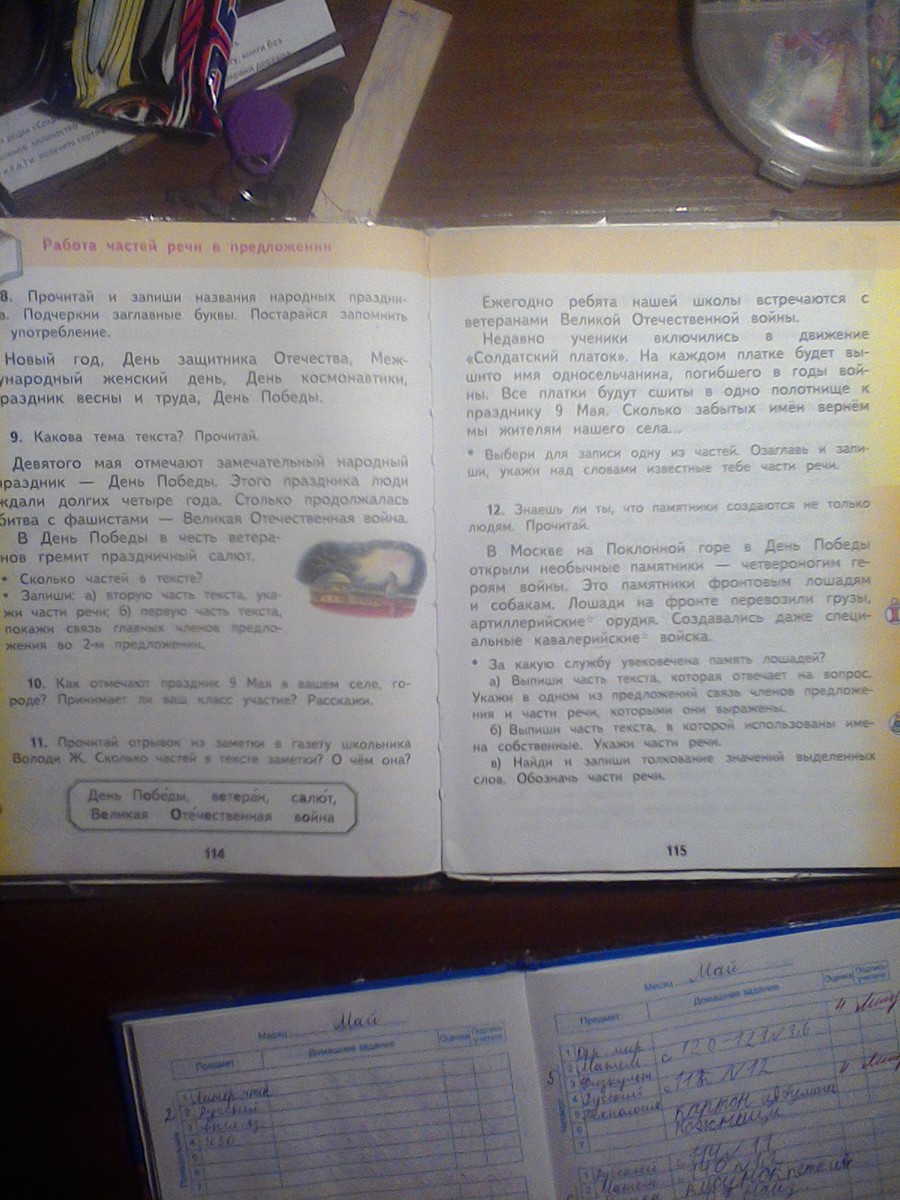 у, книги без
Работа частей речи в предложении
8. Прочитай и запиши названия народных праздни-
в. Подчеркни заглавные буквы. Постарайся запомнить
употребление.
Новый год, День защитника Отечества, Меж-
ународный женский день, День космонавтики,
раздник весны и труда, День Победы.
9. Какова тема текста? Прочитай.
Девятого мая отмечают замечательный народный
праздник — День Победы. Этого праздника люди
ждали долгих четыре года. Столько продолжалась
битва с фашистами — Великая Отечественная война.
В День Победы в честь ветера-
нов гремит праздничный салют.
• Сколько частей в тексте?
• Запиши: а) вторую часть текста, ука-
жи части речи; б) первую часть текста,
покажи связь главных членов предло-
жения во 2-м предложении.
10. Как отмечают праздник 9 Мая в вашем селе, го-
роде? Принимает ли ваш класс участие? Расскажи.
11. Прочитай отрывок из заметки в газету школьника
Володи Ж. Сколько частей в тексте заметки? О чём она?
День Побе́ды, ветера́н, салю́т,
Великая Оте́чественная война
114
Ежегодно ребята нашей школы встречаются с
ветеранами Великой Отечественной войны.
Недавно ученики включились в движение
«Солдатский платок». На каждом платке будет вы-
шито имя односельчанина, погибшего в годы вой-
ны. Все платки будут сшиты в одно полотнище к
празднику 9 Мая. Сколько забытых имён вернём
мы жителям нашего села...
* Выбери для записи одну из частей. Озаглавь и запи-
ши, укажи над словами известные тебе части речи.
12. Знаешь ли ты, что памятники создаются не только
людям. Прочитай.
В Москве на Поклонной горе в День Победы
открыли необычные памятники — четвероногим ге-
роям войны. Это памятники фронтовым лошадям
и собакам. Лошади на фронте перевозили грузы,
артиллерийские* орудия. Создавались даже специ-
альные кавалерийские* войска.
* За какую службу увековечена память лошадей?
а) Выпиши часть текста, которая отвечает на вопрос.
Укажи в одном из предложений связь членов предложе-
ния и части речи, которыми они выражены.
б) Выпиши часть текста, в которой использованы име-
на собственные. Укажи части речи.
в) Найди и запиши толкование значений выделенных
слов. Обозначь части речи.
115
Месяц Май
Предмет Домашнее задание Оценка Подпись учителя
2
1 Литер. чтен
2 Русский
3 Англ яз
4 ИЗО
5
6
7
Месяц Май
Предмет Домашнее задание Оценка Подпись учителя
5
1 Окр. мир
2 Матем
3 Физкульт
4 Русский
5 Технология картон цв. бумага
6 ножницы
7
1 Русский
2 Матем